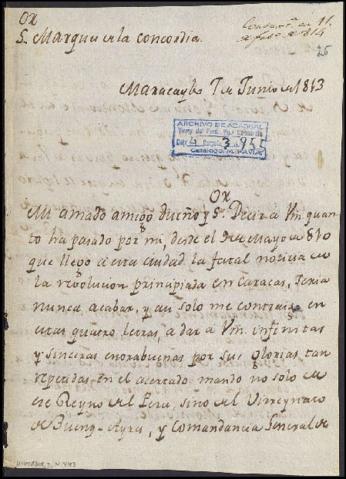 Contextn. en 11.
de febo. de 814
25
OX
S. Marques de la Concordia.
Maracaybo 7 de Junio de 1813
ARCHIVO DE ABASCAL
3 955
OX
Mi amado amigo dueño y Sr. Decir a Vm. quan
to ha pasado por mi, desde el de Mayo de 810
que llegó a esta ciudad la fatal noticia de
la revolucion principiada en Caracas, seria
nunca acabar, y asi solo me contraigo en
estas quatro letras, a dar a Vm. infinitas
y sinceras enorabuenas por sus glorias tan
repetidas en el acertado mando no solo de
ese Reyno del Peru, sino del Virreynato
de Buenos-Ayres, y Comandancia General de